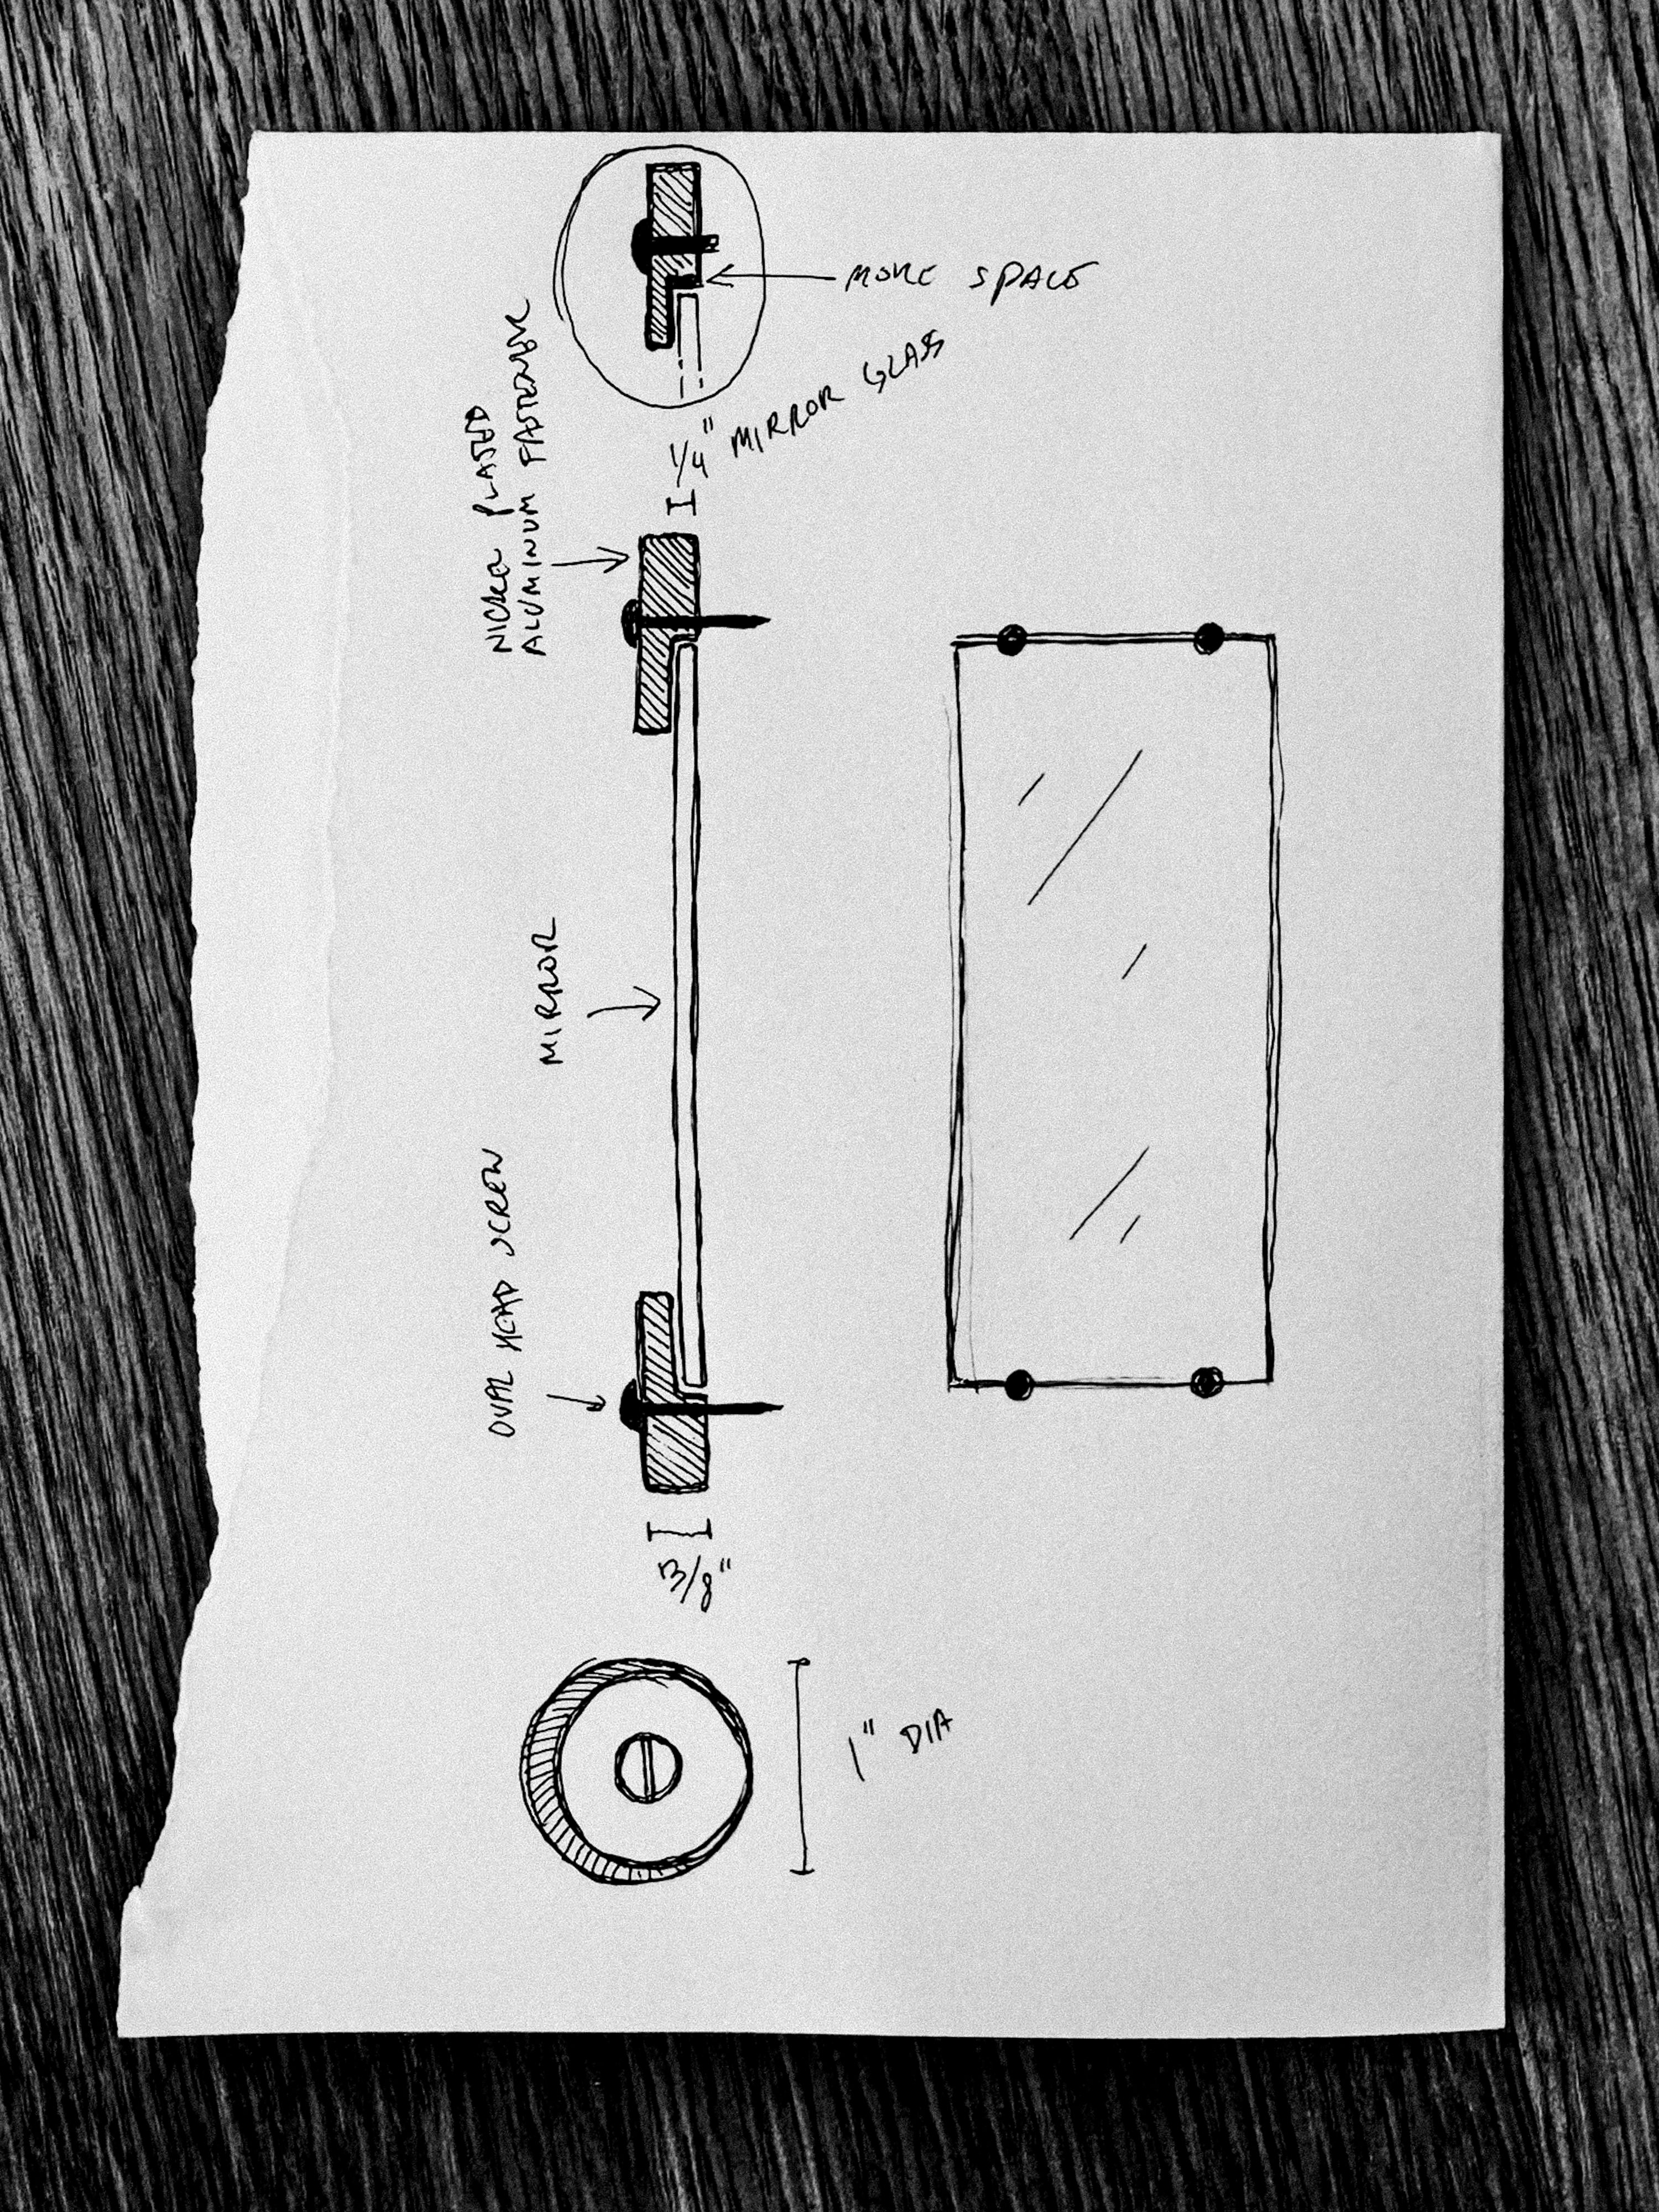 MORE SPACE
1/4" MIRROR GLASS
NICKEL PLATED
ALUMINUM FASTENER
MIRROR
OVAL HEAD SCREW
3/8"
1" DIA